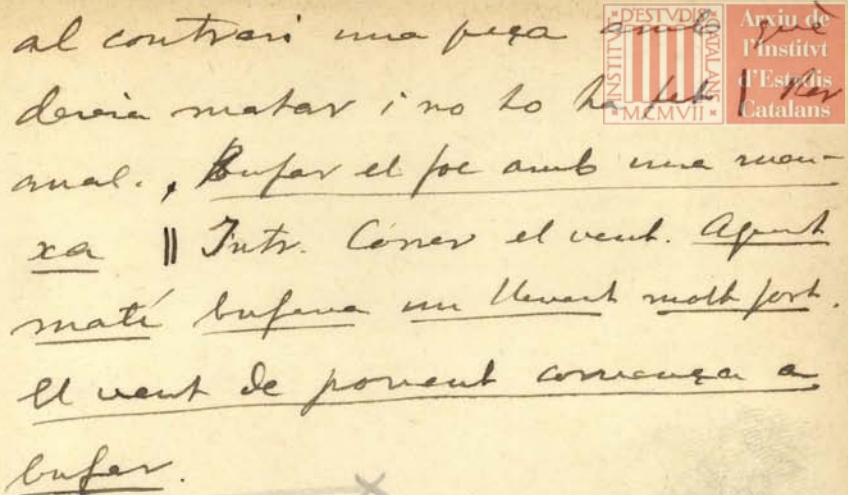 al contrari una peça amb què
devia matar i no ho ha fet | Per
anal., Bufar el foc amb una man-
xa || Intr. Córrer el vent. Aquest
matí bufava un llevant molt fort.
El vent de ponent comença a
bufar.
INSTITVT D'ESTVDIS CATALANS
MCMVII
Arxiu de
l'Institvt
d'Estudis
Catalans